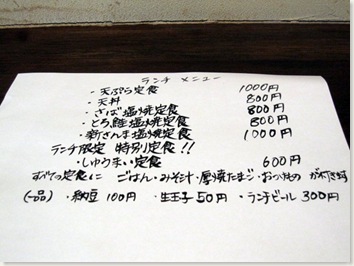 ランチ メニュー
・天ぷら定食 1000円
・天丼 800円
・さば塩焼定食 800円
・とろ鮭塩焼定食 800円
・新さんま塩焼定食 1000円
ランチ限定 特別定食!!
・しゅうまい定食 600円
すべての定食に ごはん・みそ汁・厚焼たまご・おつけもの が付きます
(一品) ・納豆 100円 ・生玉子 50円 ・ランチビール 300円